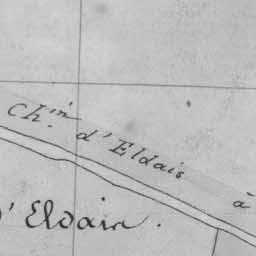 Ch.in d'Eldais à
d'Eldain.